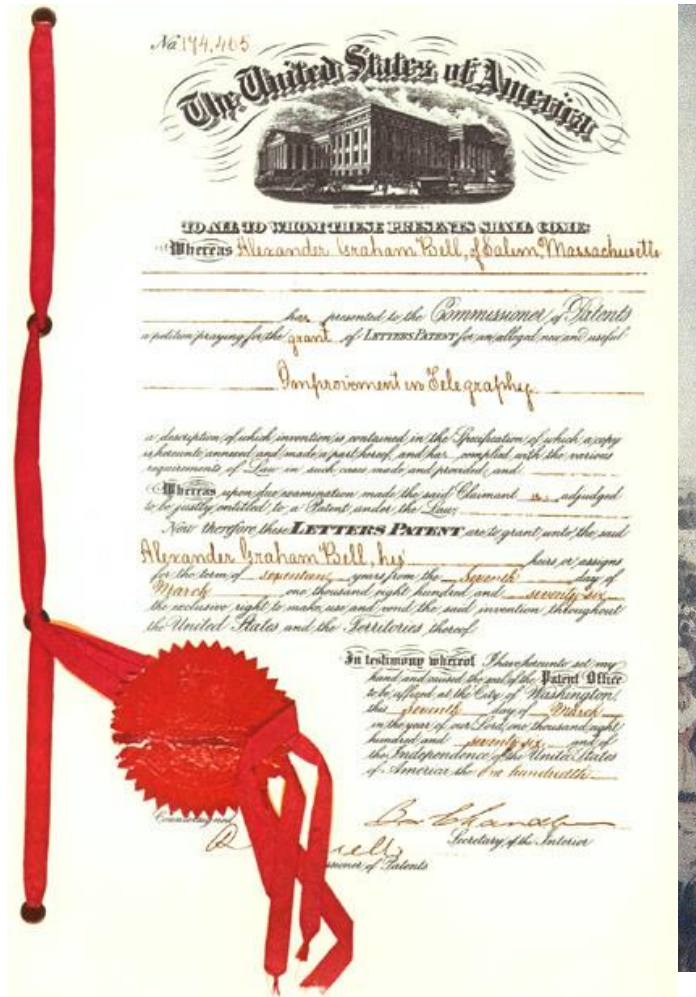 No. 174,465
The United States of America
TO ALL TO WHOM THESE PRESENTS SHALL COME:
Whereas Alexander Graham Bell, of Salem, Massachusetts
has presented to the Commissioner of Patents
a petition praying for the grant of LETTERS PATENT for an alleged new and useful
Improvement in Telegraphy
a description of which invention is contained in the Specification of which a copy
is hereunto annexed and made a part hereof, and has complied with the various
requirements of Law in such cases made and provided, and
Whereas upon due examination made the said Claimant is adjudged
to be justly entitled to a Patent under the Law.
Now therefore these LETTERS PATENT are to grant unto the said
Alexander Graham Bell, his heirs or assigns
for the term of seventeen years from the seventh day of
March one thousand eight hundred and seventy-six
the exclusive right to make, use and vend the said invention throughout
the United States and the Territories thereof.
In testimony whereof I have hereunto set my
hand and caused the seal of the Patent Office
to be affixed at the City of Washington
this seventh day of March
in the year of our Lord one thousand eight
hundred and seventy six and of
the Independence of the United States
of America the one hundredth.
Countersigned
Secretary of the Interior
of Patents